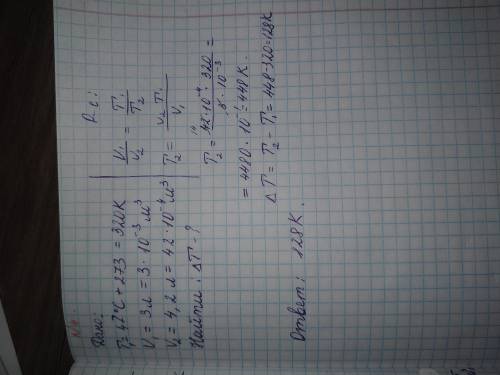 Дано:
T₁ = 47°C + 273 = 320K
V₁ = 3 л = 3 · 10⁻³ м³
V₂ = 4,2 л = 42 · 10⁻⁴ м³
Найти: ΔT - ?
Р-е:
V₁/V₂ = T₁/T₂
T₂ = V₂ T₁/V₁
T₂ = 42·10⁻⁴ · 320 / 3 · 10⁻³ =
= 4480 · 10⁻¹ = 448K.
ΔT = T₂ - T₁ = 448-320=128K
Ответ: 128K.